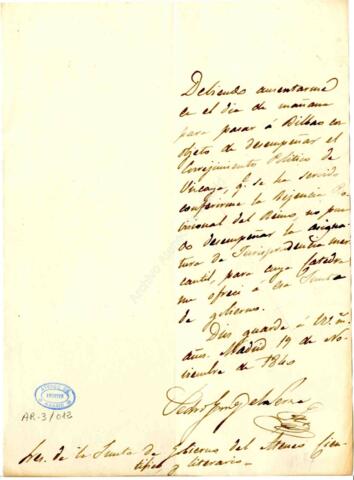 Debiendo ausentarme
en el dia de mañana
para pasar á Bilbao con
objeto de desempeñar el
Correjimiento Politico de
Vizcaya, q.e se ha servido
conferirme la Rejencia Pro
visional del Reino, no pue
do desempeñar la asigna
tura de Jurisprudencia mer
cantil, para cuya Catedra
me ofreci á esa Junta
de gobierno.
Dios guarde á VV. m.s
añs. Madrid 19 de No
viembre de 1840
Pedro de la Serna
Sres. de la Junta de gobierno del Ateneo Cien
tifico y literario.
ATENEO DE
MADRID
AR-3/013
Archivo